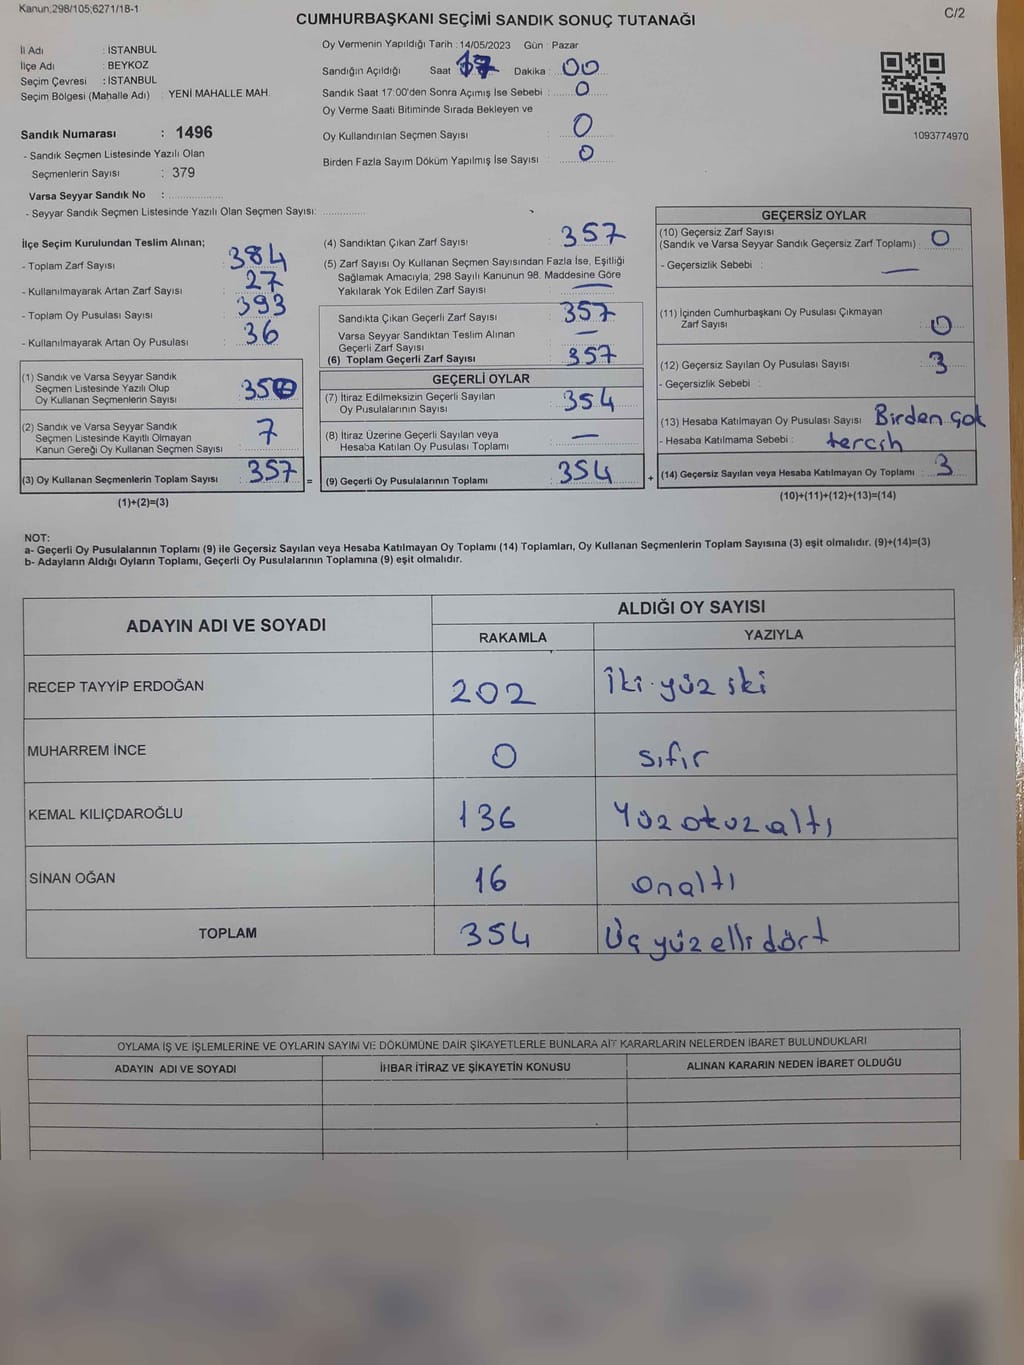 Kanun:298/105;6271/18-1
C/2
CUMHURBAŞKANI SEÇİMİ SANDIK SONUÇ TUTANAĞI
İl Adı : İSTANBUL
İlçe Adı : BEYKOZ
Seçim Çevresi : İSTANBUL
Seçim Bölgesi (Mahalle Adı) : YENİ MAHALLE MAH.
Sandık Numarası : 1496
- Sandık Seçmen Listesinde Yazılı Olan
Seçmenlerin Sayısı : 379
Varsa Seyyar Sandık No :
- Seyyar Sandık Seçmen Listesinde Yazılı Olan Seçmen Sayısı:
Oy Vermenin Yapıldığı Tarih : 14/05/2023 Gün : Pazar
Sandığın Açıldığı Saat 17 Dakika : 00
Sandık Saat 17:00'den Sonra Açımış İse Sebebi : 0
Oy Verme Saati Bitiminde Sırada Bekleyen ve
Oy Kullandırılan Seçmen Sayısı : 0
Birden Fazla Sayım Döküm Yapılmış İse Sayısı : 0
1093774970
İlçe Seçim Kurulundan Teslim Alınan;
- Toplam Zarf Sayısı : 384
- Kullanılmayarak Artan Zarf Sayısı : 27
- Toplam Oy Pusulası Sayısı : 393
- Kullanılmayarak Artan Oy Pusulası : 36
(1) Sandık ve Varsa Seyyar Sandık
Seçmen Listesinde Yazılı Olup
Oy Kullanan Seçmenlerin Sayısı : 350
(2) Sandık ve Varsa Seyyar Sandık
Seçmen Listesinde Kayıtlı Olmayan
Kanun Gereği Oy Kullanan Seçmen Sayısı : 7
(3) Oy Kullanan Seçmenlerin Toplam Sayısı : 357 =
(1)+(2)=(3)
(4) Sandıktan Çıkan Zarf Sayısı : 357
(5) Zarf Sayısı Oy Kullanan Seçmen Sayısından Fazla İse, Eşitliği
Sağlamak Amacıyla; 298 Sayılı Kanunun 98. Maddesine Göre
Yakılarak Yok Edilen Zarf Sayısı : —
Sandıkta Çıkan Geçerli Zarf Sayısı : 357
Varsa Seyyar Sandıktan Teslim Alınan
Geçerli Zarf Sayısı : —
(6) Toplam Geçerli Zarf Sayısı : 357
GEÇERLİ OYLAR
(7) İtiraz Edilmeksizin Geçerli Sayılan
Oy Pusulalarının Sayısı : 354
(8) İtiraz Üzerine Geçerli Sayılan veya
Hesaba Katılan Oy Pusulası Toplamı : —
(9) Geçerli Oy Pusulalarının Toplamı : 354 +
GEÇERSİZ OYLAR
(10) Geçersiz Zarf Sayısı
(Sandık ve Varsa Seyyar Sandık Geçersiz Zarf Toplamı) : 0
- Geçersizlik Sebebi : —
(11) İçinden Cumhurbaşkanı Oy Pusulası Çıkmayan
Zarf Sayısı : 0
(12) Geçersiz Sayılan Oy Pusulası Sayısı : 3
- Geçersizlik Sebebi :
(13) Hesaba Katılmayan Oy Pusulası Sayısı Birden çok
- Hesaba Katılmama Sebebi : tercih
(14) Geçersiz Sayılan veya Hesaba Katılmayan Oy Toplamı : 3
(10)+(11)+(12)+(13)=(14)
NOT:
a- Geçerli Oy Pusulalarının Toplamı (9) ile Geçersiz Sayılan veya Hesaba Katılmayan Oy Toplamı (14) Toplamları, Oy Kullanan Seçmenlerin Toplam Sayısına (3) eşit olmalıdır. (9)+(14)=(3)
b- Adayların Aldığı Oyların Toplamı, Geçerli Oy Pusulalarının Toplamına (9) eşit olmalıdır.
ADAYIN ADI VE SOYADI ALDIĞI OY SAYISI
RAKAMLA YAZIYLA
RECEP TAYYİP ERDOĞAN 202 İki yüz iki
MUHARREM İNCE 0 sıfır
KEMAL KILIÇDAROĞLU 136 Yüz otuz altı
SİNAN OĞAN 16 onaltı
TOPLAM 354 Üç yüz elli dört
OYLAMA İŞ VE İŞLEMLERİNE VE OYLARIN SAYIM VE DÖKÜMÜNE DAİR ŞİKAYETLERLE BUNLARA AİT KARARLARIN NELERDEN İBARET BULUNDUKLARI
ADAYIN ADI VE SOYADI İHBAR İTİRAZ VE ŞİKAYETİN KONUSU ALINAN KARARIN NEDEN İBARET OLDUĞU